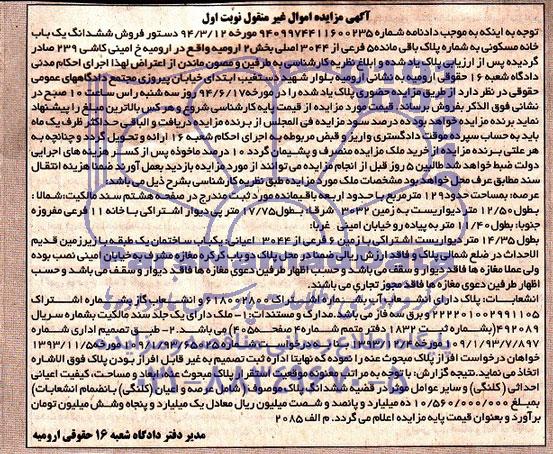 آگهی مزایده اموال غیر منقول نوبت اول
توجه به اینکه به موجب دادنامه شماره ۹۴۰۹۹۷۴۴۱۱۶۰۰۲۳۵ مورخه ۹۴/۳/۱۲ دستور فروش ششدانگ یک باب
خانه مسکونی به شماره پلاک باقی مانده ۵ فرعی از ۳۰۴۴ اصلی بخش ۲ ارومیه واقع در ارومیه خ امینی کاشی ۲۳۹ صادر
گردیده پس از ارزیابی پلاک یاد شده و ابلاغ نظریه کارشناسی به طرفین و مصون ماندن از اعتراض لهذا اجرای احکام مدنی
دادگاه شعبه ۱۶ حقوقی ارومیه به نشانی ارومیه بلوار شهید دستغیب ابتدای خیابان پیروزی مجتمع دادگاههای عمومی
حقوقی در نظر دارد از طریق مزایده حضوری پلاک یاد شده را در مورخه ۹۴/۶/۱۷ روز سه شنبه راس ساعت ۱۰ صبح در
نشانی فوق الذکر بفروش رساند. قیمت مورد مزایده از قیمت پایه کارشناسی شروع و هر کس بالاترین مبلغ را پیشنهاد
نماید برنده مزایده خواهد بود ده درصد سود مزایده فی المجلس از برنده مزایده دریافت و الباقی حداکثر ظرف یک ماه
باید به حساب سپرده موقت دادگستری واریز و قبض مربوطه به اجرای احکام شعبه ۱۶ ارائه و تحویل گردد و چنانچه به
هر علتی برنده مزایده از خرید ملک مزایده منصرف و پشیمان گردد ۱۰ درصد ماخوذه پس از کسر هزینه های اجرایی
دولت ضبط خواهد شد طالبین ۵ روز قبل از انجام مزایده می توانند از مورد مزایده بازدید بعمل آورند ضمنا هزینه انتقال
سند مطابق عرف محل خواهد بود مشخصات ملک مورد مزایده طبق نظریه کارشناسی بشرح ذیل می باشد:
عرصه: بمساحت حدود ۱۲۹ مترمربع با حدود اربعه باقیمانده مورد ثبت مندرج در صفحه هشتم سند مالکیت: شمالا:
بطول ۱۲/۵۰ متر دیواریست به زمین ۳۰۳۲ شرقا: بطول ۱۷/۷۵ متر پی دیوار اشتراکی با خانه ۱۱ فرعی مفروزه
جنوبا: بطول ۱۱/۴۰ متر به پیاده رو خیابان امینی غربا:
بطول ۱۴/۳۵ متر دیواریست اشتراکی با زمین ۶ فرعی از ۳۰۴۴ اعیانی: یکباب ساختمان یک طبقه با زیرزمین قدیم
الاحداث در ضلع شمالی پلاک و فاقد ارزش ریالی ضمنا در محل پلاک دو باب کرکره مغازه مشرف به خیابان امینی نصب بوده
ولی عملا مغازه ها فاقد دیوار و سقف می باشد و حسب اظهار طرفین دعوی مغازه ها فاقد دیوار و سقف می باشد و حسب
اظهار طرفین دعوی مغازه ها فاقد مجوز تجاری می باشند.
انشعابات: پلاک دارای انشعاب آب شماره اشتراک ۶۱۸۰۰۲۸۰۰ و انشعاب گاز و شماره اشتراک
۲۲۲۲۰۱۰۰۲۹۹۱۱۰۵ و برق سه فاز می باشد. مدارک و مستندات: ۱- ملک دارای یک جلد سند مالکیت بشماره سریال
۴۹۲۰۸۹ (بشماره ثبت ۱۸۳۲۶ دفتر متمم شماره ۴ صفحه ۴۰۵) می باشد. ۲- طبق تصمیم اداری شماره
خواهان درخواست افراز پلاک مبحوث عنه را نموده که نهایتا اداره ثبت تصمیم به غیر قابل افراز بودن پلاک فوق الاشاره
اتخاذ می نماید. نتیجه گزارش: با توجه به مراتب و بعنوان موقعیت و کاربری پلاک مبحوث عنه ابعاد و مساحت، کیفیت اعیانی
احداثی (کلنگی) و سایر عوامل موثر در قضیه ششدانگ پلاک موصوف شامل عرصه و اعیان (کلنگی) بانضمام انشعابات)
بمبلغ ۱۰/۵۶۰/۰۰۰/۰۰۰ ده میلیارد و پانصد و شصت میلیون ریال معادل یک میلیارد و پنجاه و شش میلیون تومان
برآورد و بعنوان قیمت پایه مزایده اعلام می گردد. م الف ۲۰۸۵
مدیر دفتر دادگاه شعبه ۱۶ حقوقی ارومیه